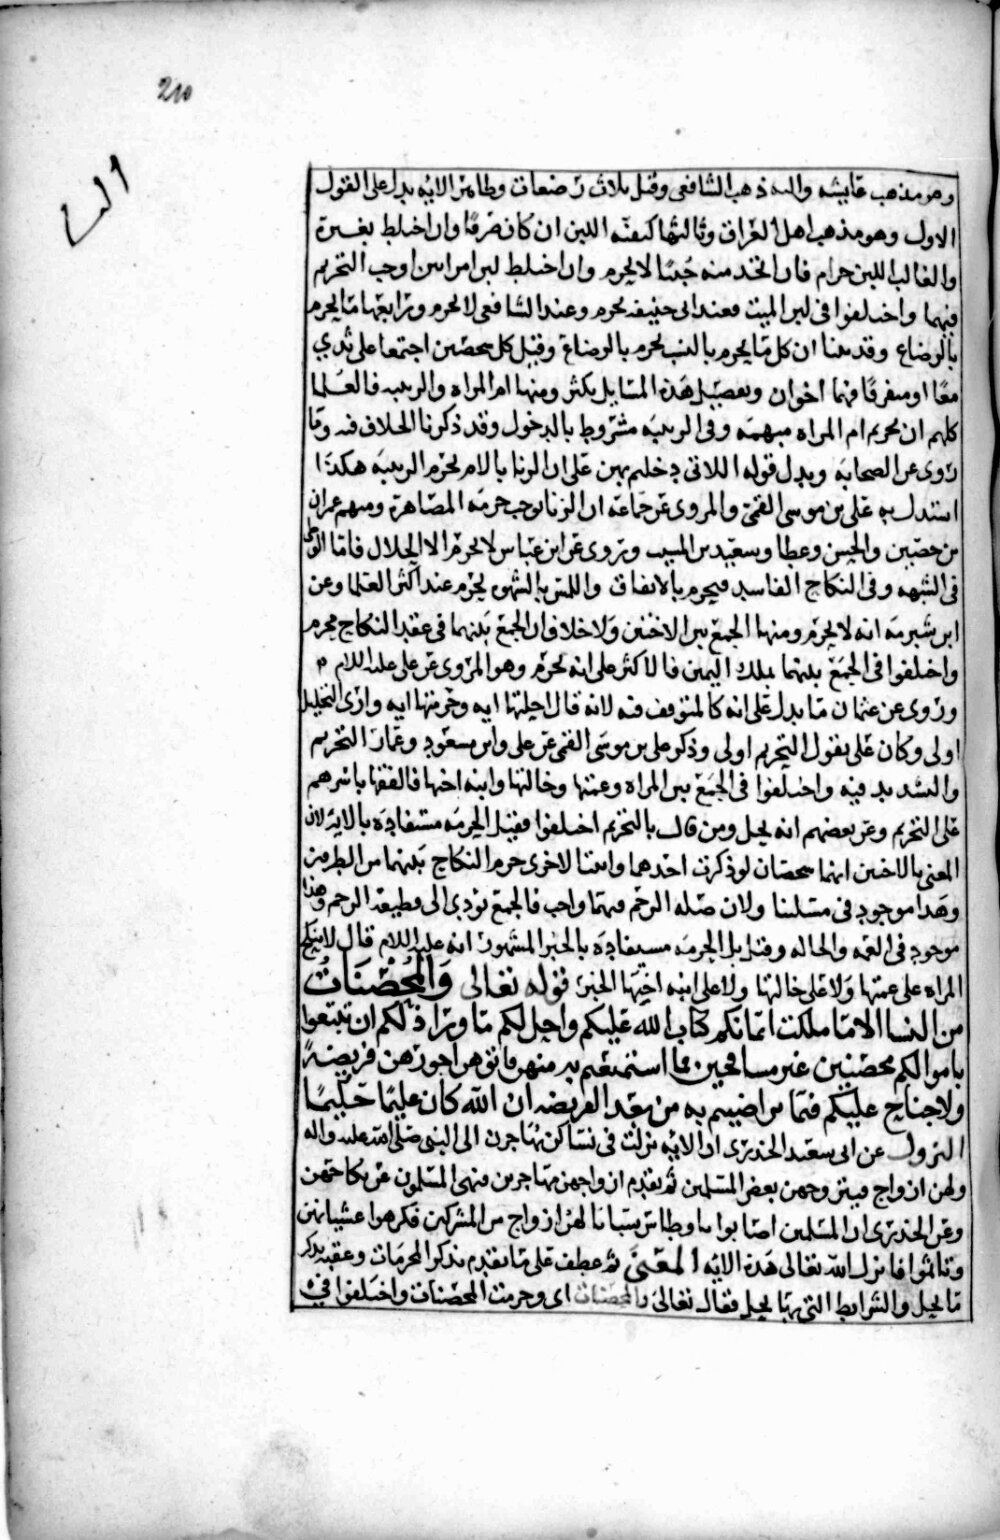 210
وهو مذهب عايشه واليه ذهب الشافعى وقيل بلاث رضعات وظاهر الايه يدل على القول
الاول وهو مذهب اهل العراق وثالثها كيفيه اللبن ان كان صرفا وان اختلط بغيره
والغالب اللبن حرام فان اتخذ منه جبنا لا يحرم وان اختلط لبن امراتين اوجب التحريم
فيهما واختلفوا فى لبن الميت فعند ابى حنيفه يحرم وعند الشافعى لا يحرم ورابعها ما يحرم
بالرضاع وقد بينا ان كل ما يحرم بالنسب يحرم بالرضاع وقيل كل شخصين اجتمعا على ثدي
معا او متفرقا فهما اخوان وتفصيل هذه المسايل يكثر ومنها ام المراه والربيبه فالعلما
كلهم ان تحريم ام المراه مبهمه وفى الربيبه مشروط بالدخول وقد ذكرنا الخلاف فيه وما
روى عن الصحابه ويدل قوله اللاتى دخلتم بهن على ان الزنا بالام لا يحرم الربيبه هكذا
استدل به على بن موسى القمى والمروى عن جماعه ان الزنا يوجب حرمه المصاهره ومنهم عمران
بن حصين والحسن وعطا وسعيد بن المسيب وروى عن ابن عباس لا يحرم الا الحلال فاما الوطى
فى الشبهه وفى النكاح الفاسد فيحرم بالاتفاق واللمس بالشهوه يحرم عند اكثر العلما وعن
ابن شبرمه انه لا يحرم ومنها الجمع بين الاختين ولا خلاف ان الجمع بينهما فى عقد النكاح محرم
واختلفوا فى الجمع بينهما بملك اليمين فالاكثر على انه يحرم وهو المروى عن على عليه السلام
وروى عن عثمان ما يدل على انه كالمتوقف فيه لانه قال احلتها ايه وحرمتها ايه وارى التحليل
اولى وكان على يقول التحريم اولى وذكر على بن موسى القمى عن على وابن مسعود وعمار التحريم
والتشديد فيه واختلفوا فى الجمع بين المراه وعمتها وخالتها وابنه اختها فالفقها باسرهم
على التحريم وعن بعضهم انه يحل ومن قال بالتحريم اختلفوا فقيل الحرمه مستفاده بالايه لان
المعنى بالاختين انهما شخصان لو ذكرت احدهما وانثا الاخرى حرم النكاح بينهما من الطرفين
وهذا موجود فى مسلتنا ولان صله الرحم فيهما واجب فالجمع يودى الى قطيعه الرحم وهذا
موجود فى العمه والخاله وقيل بل الحرمه مستفاده بالخبر المشهور انه عليه السلام قال لا ينكح
المراه على عمتها ولا على خالتها ولا على ابنه اخيها الخبر قوله تعالى وَالْمُحْصَنَاتُ
من النسا الا ما ملكت ايمانكم كتاب الله عليكم واحل لكم ما ورا ذلكم ان تبتغوا
باموالكم محصنين غير مسافحين فما استمتعتم به منهن فاتوهن اجورهن فريضة
ولا جناح عليكم فيما تراضيتم به من بعد الفريضه ان الله كان عليما حكيما
النزول عن ابى سعيد الخدرى ان الايه نزلت فى نسا كن يهاجرن الى النبى صلى الله عليه واله
ولهن ازواج فيتزوجهن بعض المسلمين ثم يقدم ازواجهن مهاجرين فنهى المسلمون عن نكاحهن
وعن الخدرى ان المسلمين اصابوا با وطاس سبايا لهن ازواج من المشركين فكرهوا غشيانهن
وتاثموا فانزل الله تعالى هذه الايه المعنى ثم عطف على ما تقدم بذكر المحرمات وعقبه بذكر
ما يحل والشرايط التى بها يحل فقال تعالى والمحصنات اى وحرمت المحصنات واختلفوا فيه